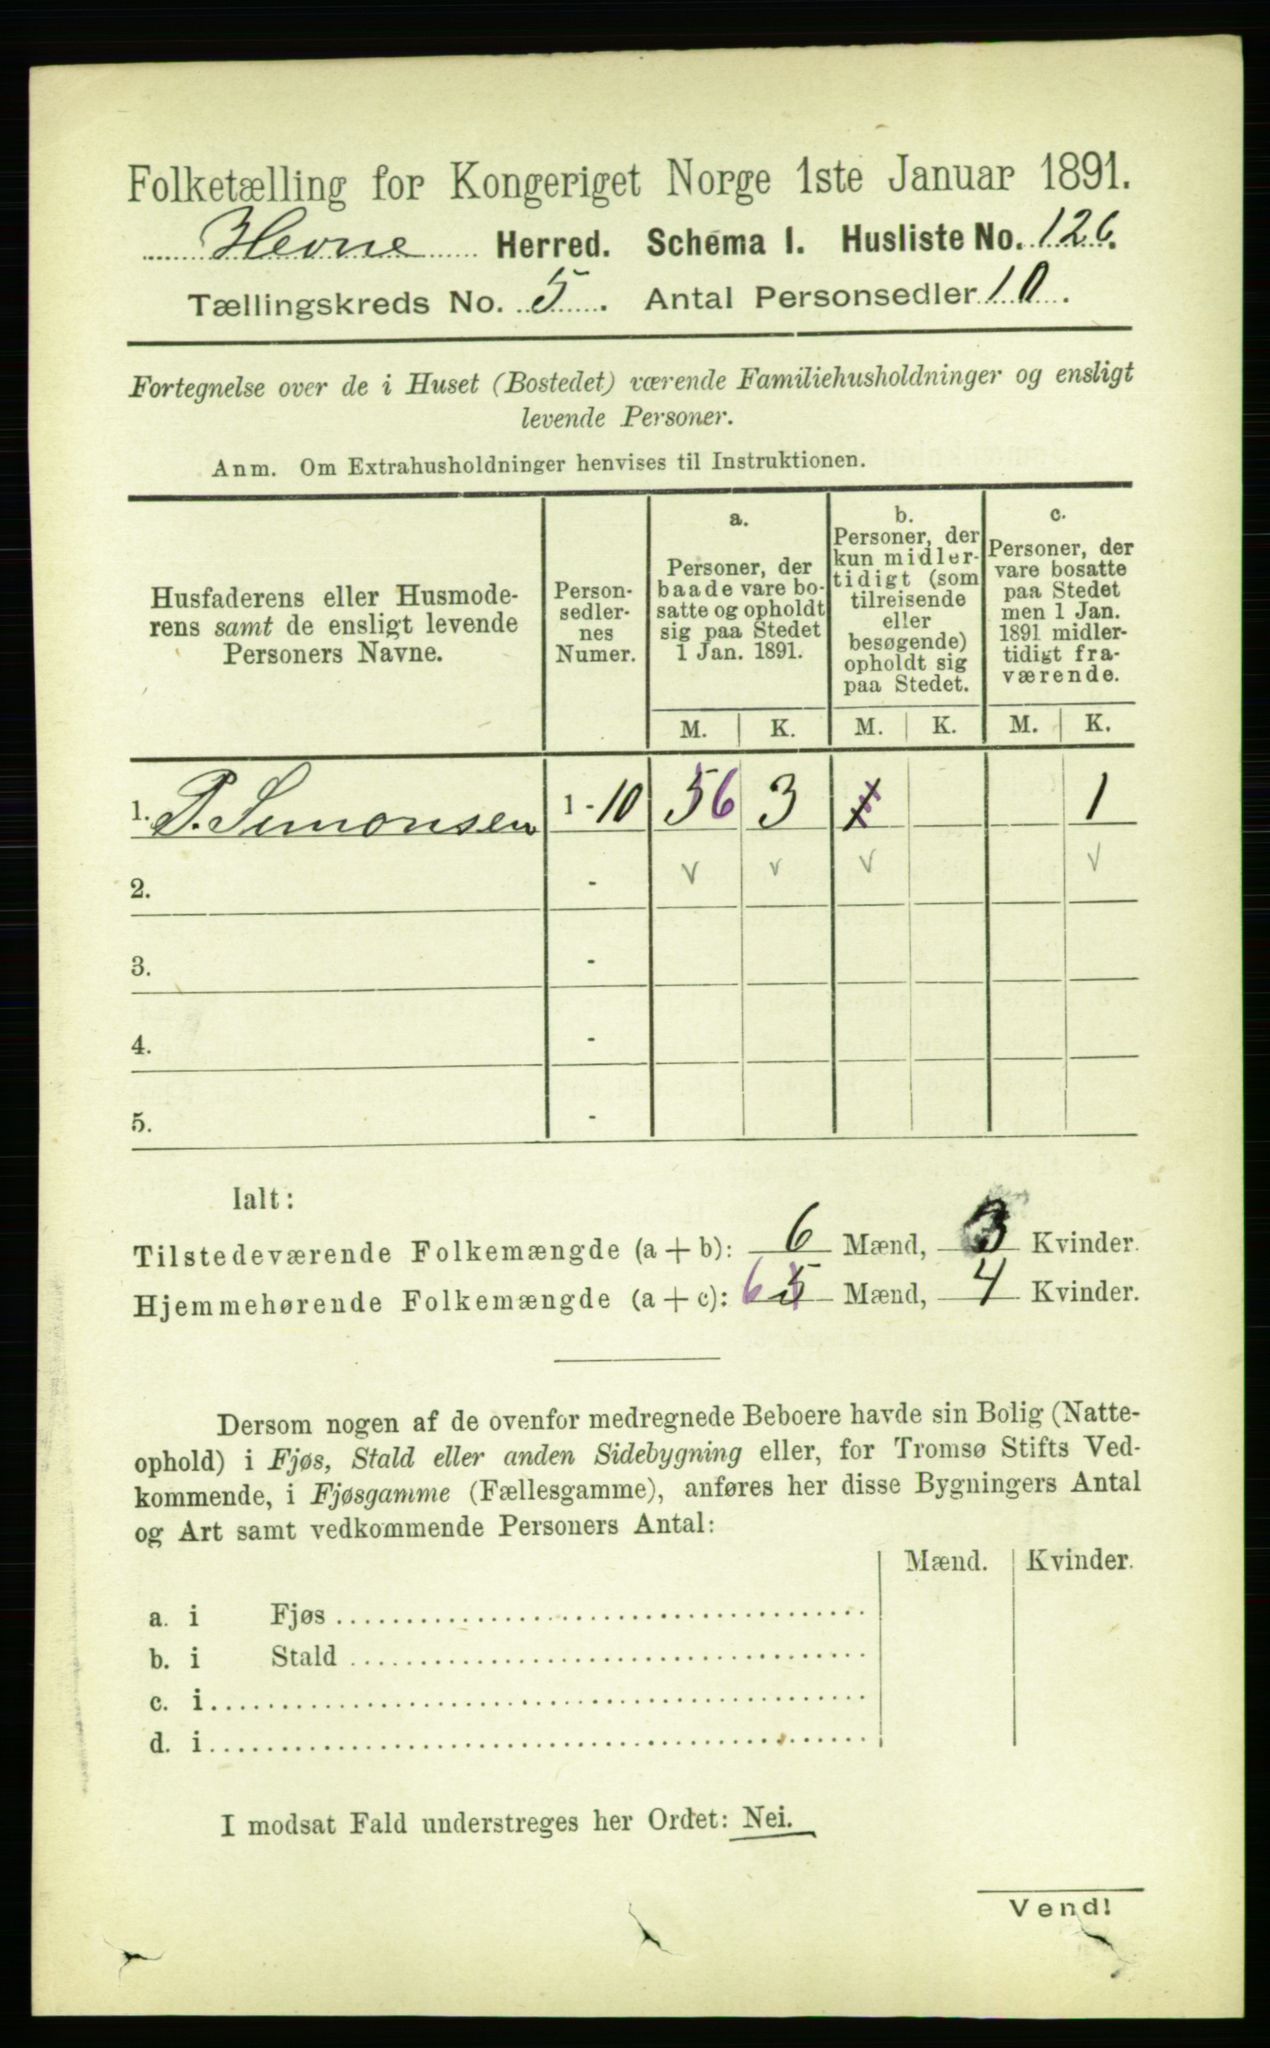 Folketælling for Kongeriget Norge 1ste Januar 1891.
Hevne Herred. Schema I. Husliste No. 126.
Tællingskreds No. 5. Antal Personsedler 10.
Fortegnelse over de i Huset (Bostedet) værende Familiehusholdninger og ensligt
levende Personer.
Anm. Om Extrahusholdninger henvises til Instruktionen.
Husfaderens eller Husmode-
rens samt de ensligt levende
Personers Navne.
Person-
sedler-
nes
Numer.
a.
Personer, der
baade vare bo-
satte og opholdt
sig paa Stedet
1 Jan. 1891.
b.
Personer, der
kun midler-
tidigt (som
tilreisende
eller
besøgende)
opholdt sig
paa Stedet.
c.
Personer, der
vare bosatte
paa Stedet
men 1 Jan.
1891 midler-
tidigt fra-
værende.
M. K. M. K. M. K.
1. P. Simonsen 1 - 10 5 6 3 1 1
2. - v v v v
3. -
4. -
5. -
Ialt:
Tilstedeværende Folkemængde (a + b): 6 Mænd, 3 Kvinder.
Hjemmehørende Folkemængde (a + c): 6 5 Mænd, 4 Kvinder.
Dersom nogen af de ovenfor medregnede Beboere havde sin Bolig (Natte-
ophold) i Fjøs, Stald eller anden Sidebygning eller, for Tromsø Stifts Ved-
kommende, i Fjøsgamme (Fællesgamme), anføres her disse Bygningers Antal
og Art samt vedkommende Personers Antal:
Mænd. Kvinder.
a. i Fjøs
b. i Stald
c. i
d. i
I modsat Fald understreges her Ordet: Nei.
Vend!